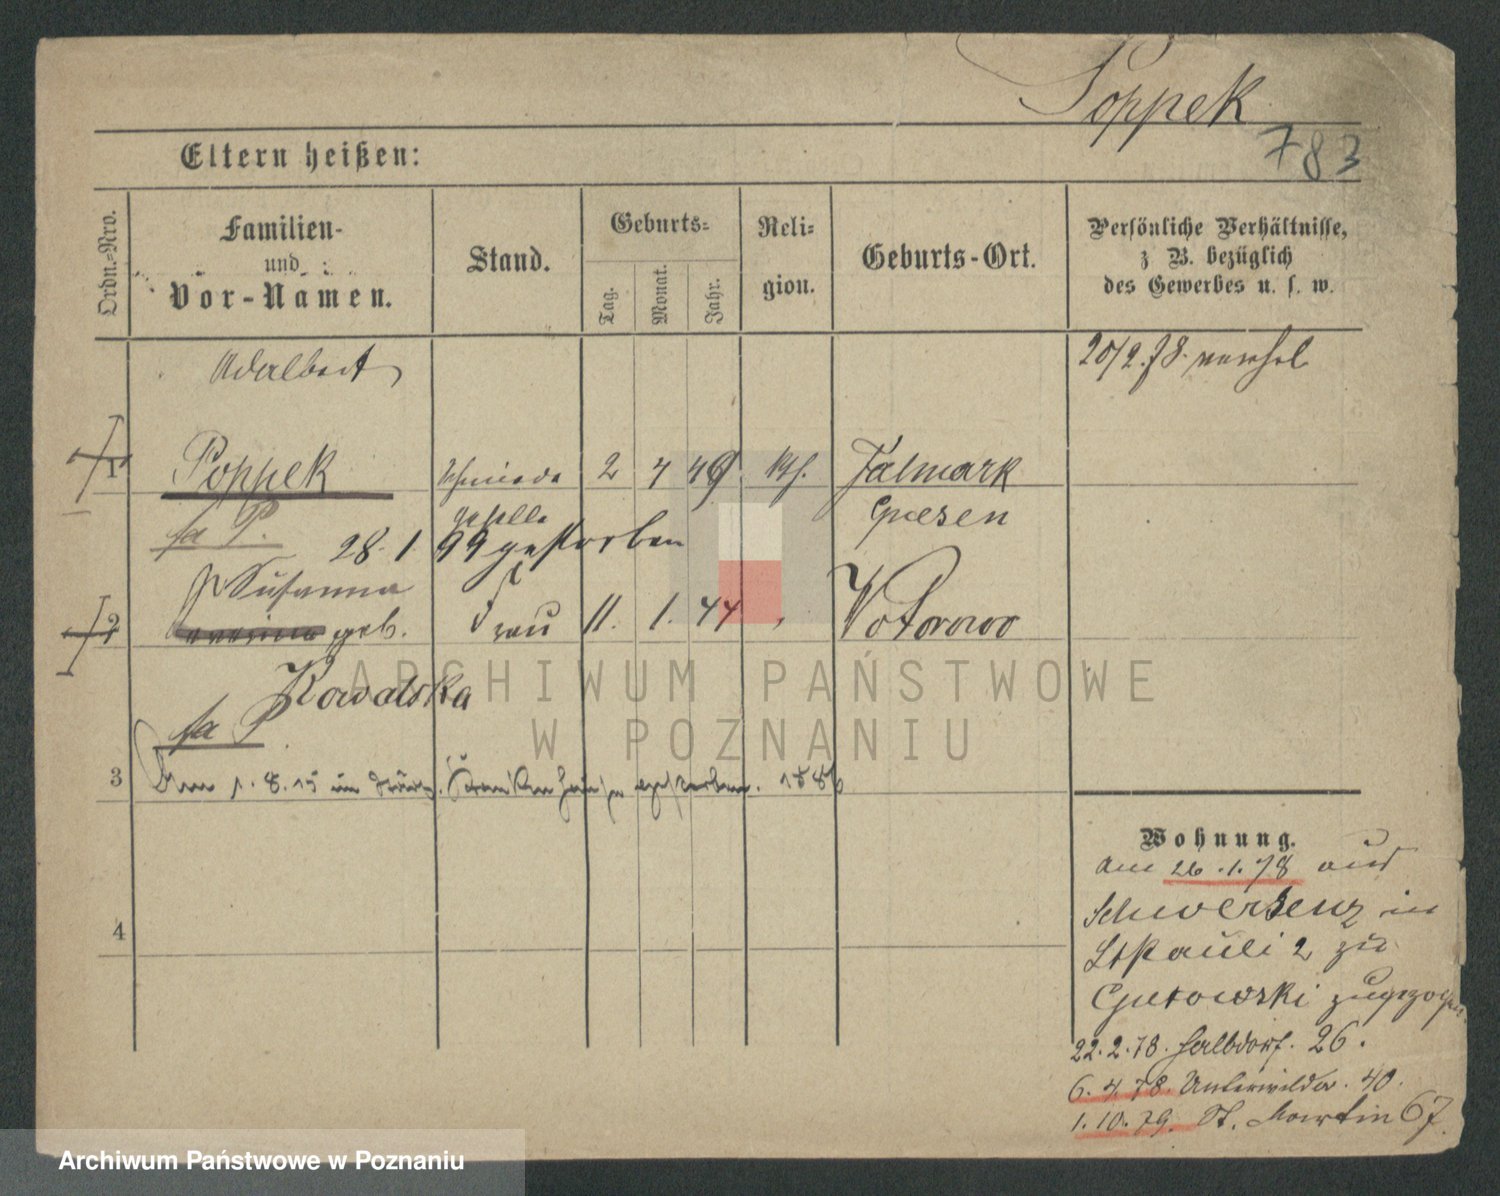 Poppek
783
Eltern heißen:
Ordn.-Nro.
Familien-
und
Vor-Namen.
Stand.
Geburts-
Tag.
Monat.
Jahr.
Reli-
gion.
Geburts-Ort.
Persönliche Verhältnisse,
z B. bezüglich
des Gewerbes u. s. w.
Adalbert
20/2.78.
1 Poppek Schmiede 2 4 49 kth. Jalmark
geselle Gnesen
fa P.
28.1 99 gestorben
Susanna
2 geb. Frau 11. 1. 44 Wotorowo
Kowalska
fa P
3 Am 1.8.15 im Krankenhause gestorben. 1886
4
Wohnung.
Am 26.1.78 aus
Schwersenz in
St Pauli 2 zu
Gutowski zugezogen
22.2.78. Halbdorf. 26.
6.4.78. Unterwilda. 40.
1.10.79. St. Martin 67
ARCHIWUM PAŃSTWOWE
W POZNANIU
Archiwum Państwowe w Poznaniu